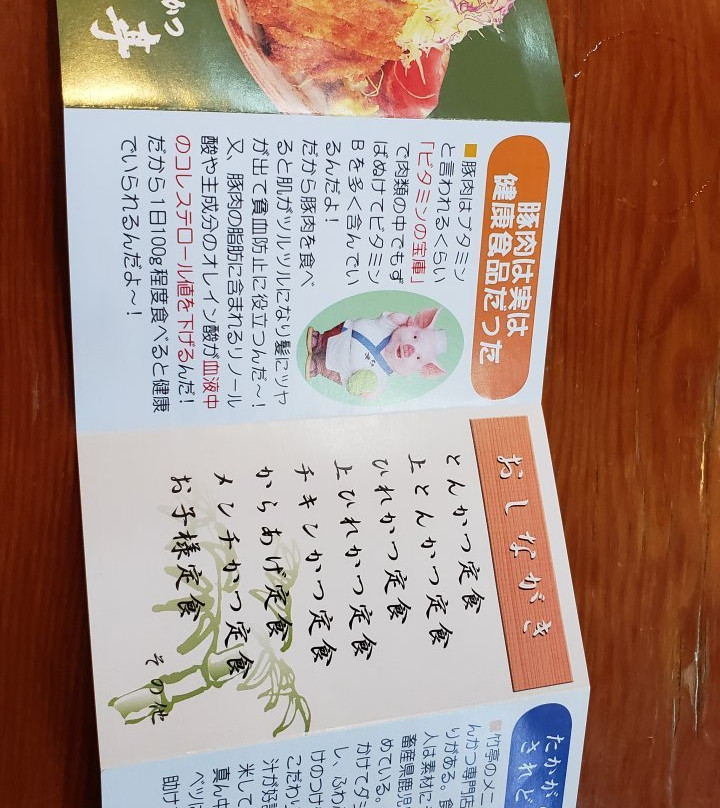 かつ
亭
豚肉は実は
健康食品だった
■豚肉はブタミン
と言われるくらい
「ビタミンの宝庫」
で肉類の中でもず
ばぬけてビタミン
Bを多く含んでい
るんだよ！
だから豚肉を食べ
ると肌がツルツルになり髪にツヤ
が出て貧血防止に役立つんだ〜！
又、豚肉の脂肪に含まれるリノール
酸や主成分のオレイン酸が血液中
のコレステロール値を下げるんだ！
だから1日100g程度食べると健康
でいられるんだよ〜！
おしながき
とんかつ定食
上とんかつ定食
ひれかつ定食
上ひれかつ定食
チキンかつ定食
からあげ定食
メンチかつ定食
お子様定食
その他
たかが
されど
■竹亭のメー
んかつ専門店
りがある。食
人は素材に
畜産県鹿児
めている。
かけてダ
し、ふわ
けのつけ
こだわり
汁が好
米して
真ん中
ベツに
助け